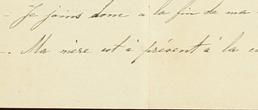 - Je joins donc à la fin de ma
-. Ma mère est à présent à la